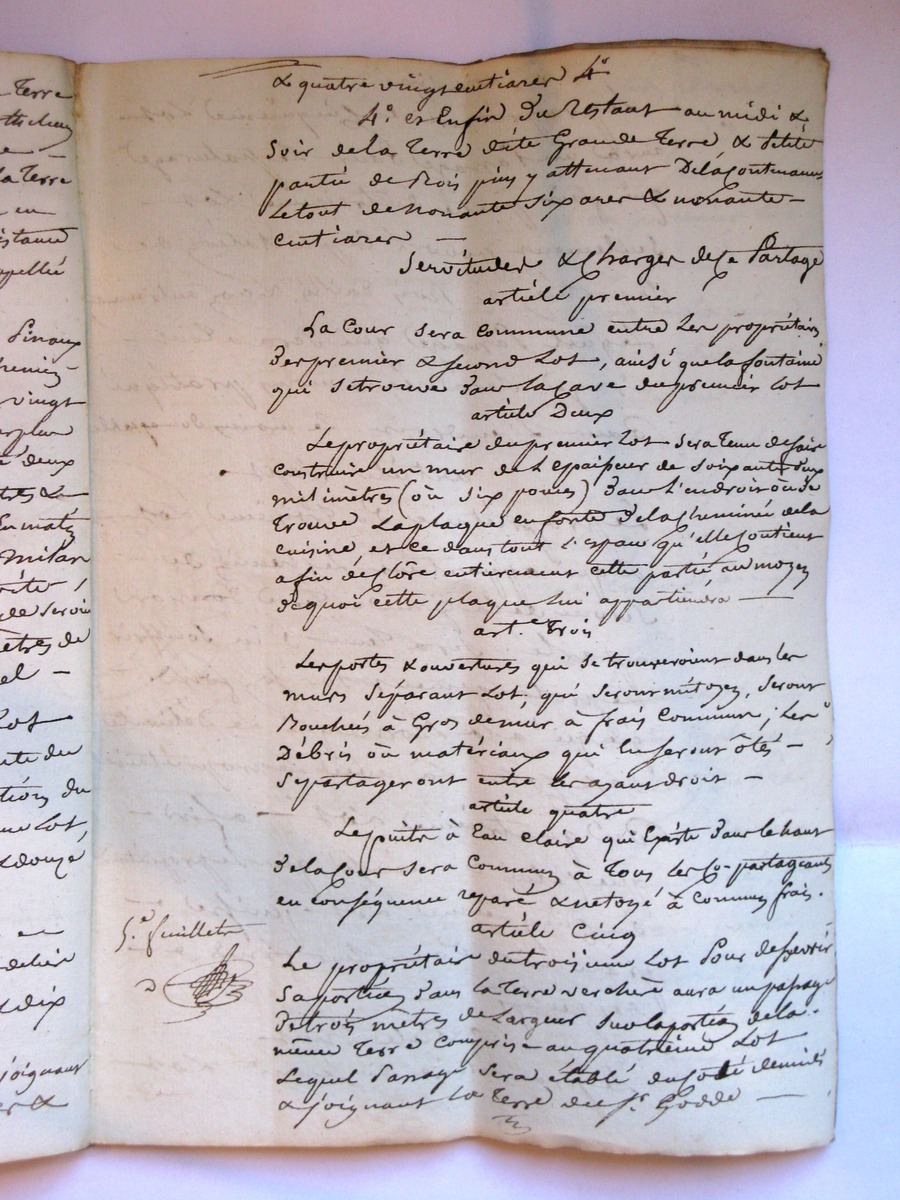 Terre
la Terre
en
Pinaux
vingt
deux
Milan
tres de
el -
Lot
tion du
me Lot,
& douze
& dix
joignant
& quatre vingt centiares 4°
4° et Enfin du Restant au midi &
soir de la Terre dite Grande Terre, & petite
partie de Bois pins y attenant De la Contenance
Le tout de nonante six ares & nonante -
centiares -
Servitudes & Charges de Ce Partage
article premier
La Cour sera commune entre Les propriétaires
des premier & second Lot, ainsi que la fontaine
qui se trouve dans la Cave du premier Lot
article Deux
Le propriétaire du premier Lot sera Tenu de faire
construire un mur de L'Epaisseur de soixante deux
milimètres (ou six pouces) dans L'endroit où se
Trouve La plaque en fonte de la Cheminée de la
cuisine, et ce dans tout l'espace qu'elle Contient
afin de Clôre entièrement cette partie au moyen
de quoi cette plaque lui appartiendra -
art.e Trois
Les portes & ouvertures qui se trouveront dans les
murs séparant Lot, qui seront mitoyen, seront
Bouchés à Gros de mur à frais Commun; Les
Débris ou matériaux qui En seront ôtés -
se partageront entre les ayans droit -
article quatre
Le puits à Eau claire qui Existe dans le haut
de la Cour sera Commun à Tous les Co-partageants
en Conséquence reparé & netoyé à Commun frais.
article Cinq
5.e feuillet
Le propriétaire du troisieme Lot Pour desservir
sa portion dans la Terre verchere aura un passage
de trois mètres de Largeur sur la portion de la
même Terre Comprise au quatrième Lot
Lequel Passage sera établi du Coté de midi
& joignant la Terre du S.r Godde -